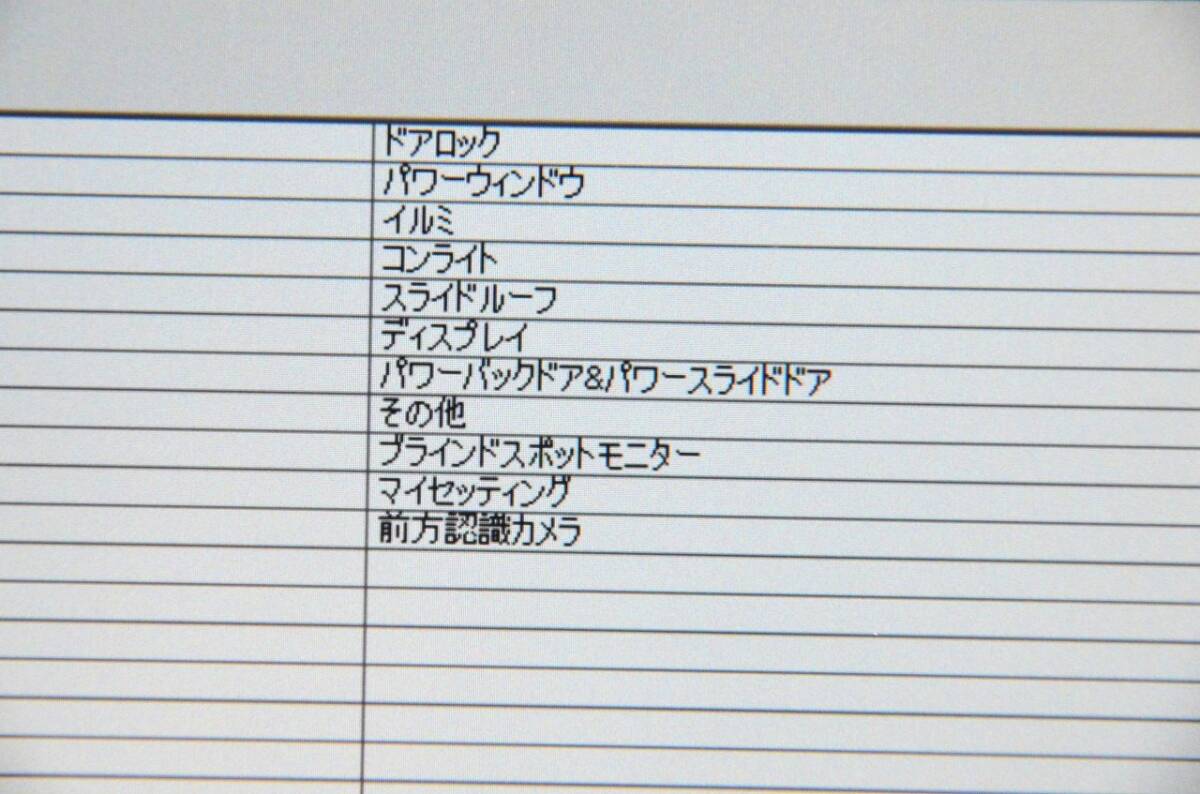 ドアロック
パワーウィンドウ
イルミ
コンライト
スライドルーフ
ディスプレイ
パワーバックドア&パワースライドドア
その他
ブラインドスポットモニター
マイセッティング
前方認識カメラ